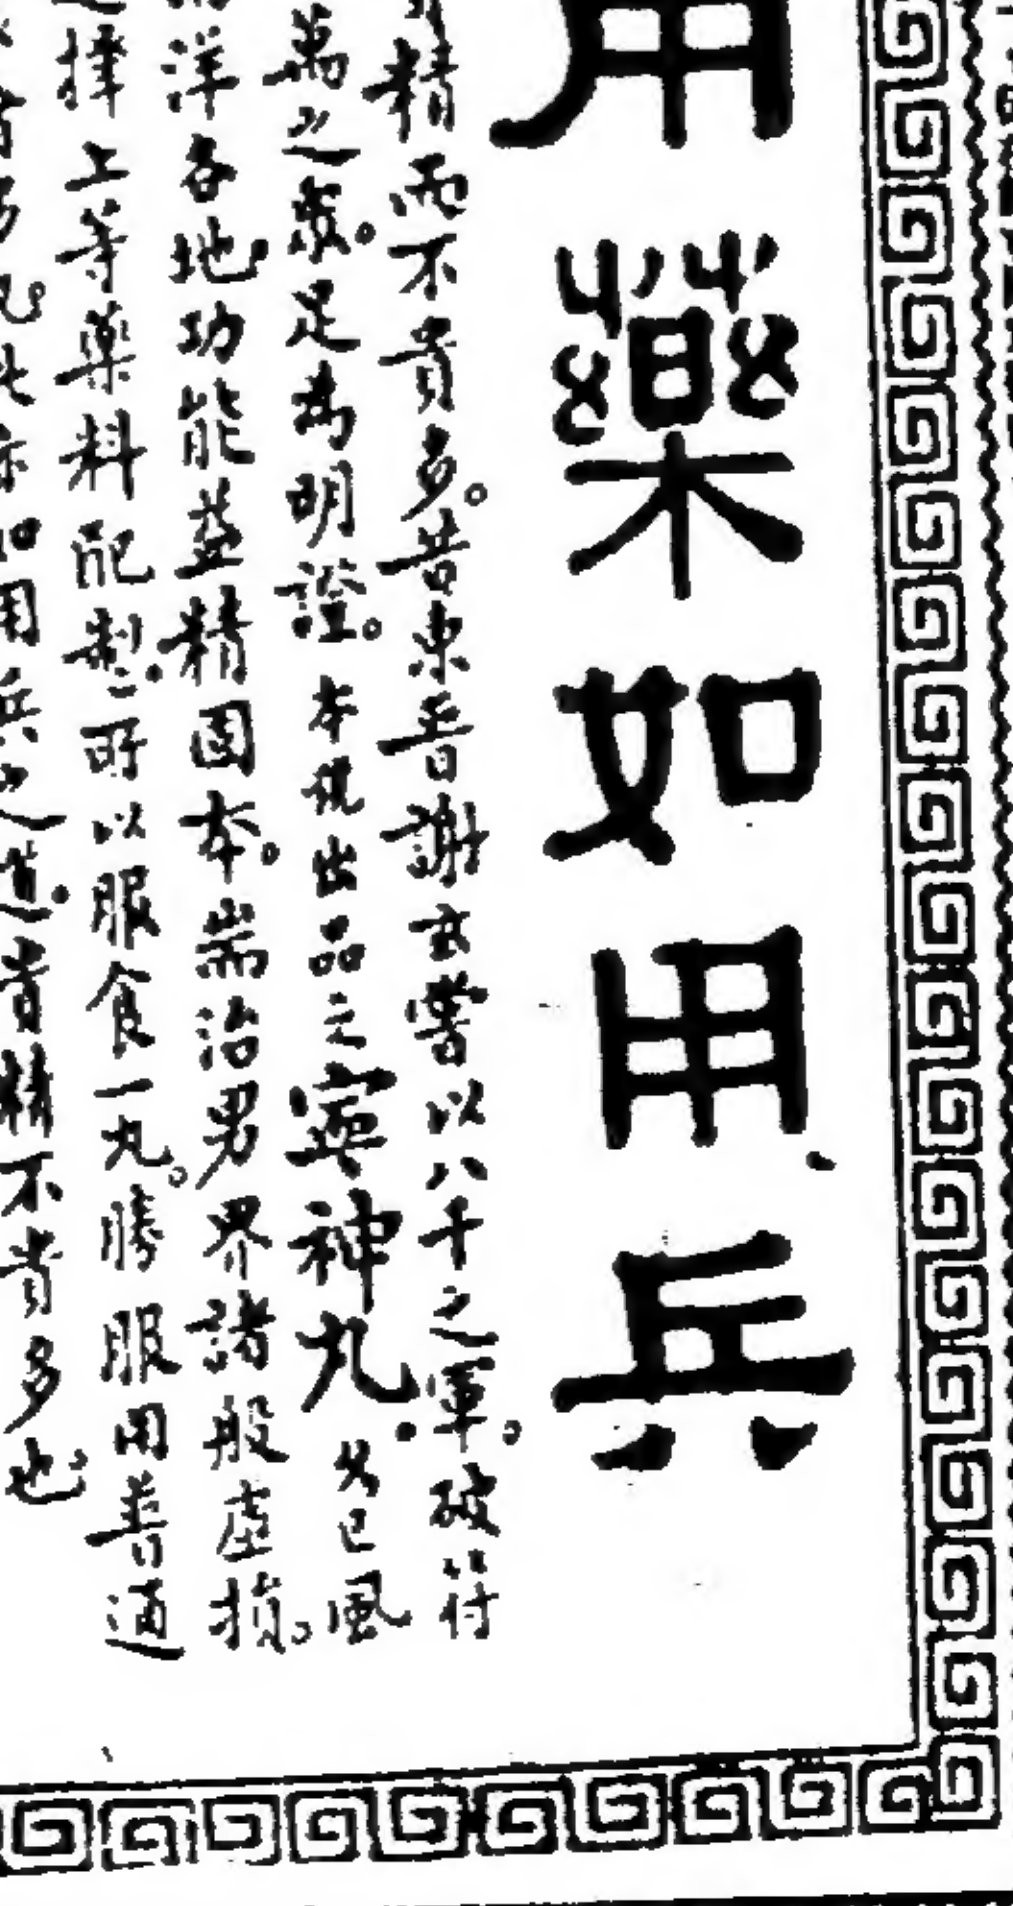 用藥如用兵
精而不貴多。昔東晉謝玄嘗以八千之軍。破苻
萬之衆。足為明證。本號出品之寧神丸。久已風
洋各地功能益精固本。耑治男界諸般虛損。
擇上等藥料配製。所以服食一丸。勝服用普通
用兵之道。貴精不貴多也